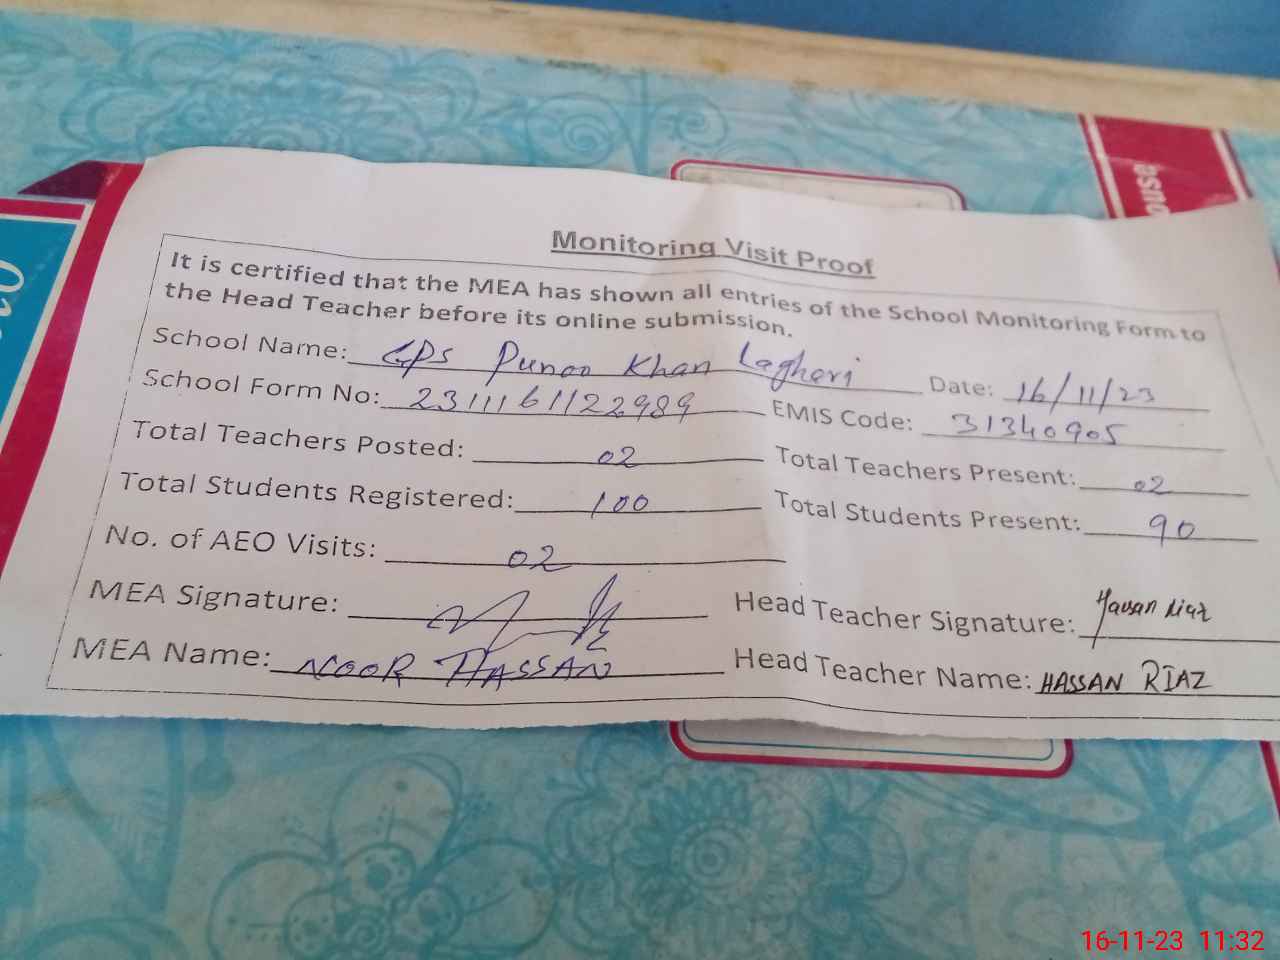 Monitoring Visit Proof
It is certified that the MEA has shown all entries of the School Monitoring Form to
the Head Teacher before its online submission.
School Name: GPS Punoo Khan Laghari Date: 16/11/23
School Form No: 2311161122989 EMIS Code: 31340905
Total Teachers Posted: 02 Total Teachers Present: 02
Total Students Registered: 100 Total Students Present: 90
No. of AEO Visits: 02
MEA Signature: Head Teacher Signature: Hassan Riaz
MEA Name: NOOR HASSAN Head Teacher Name: HASSAN RIAZ
16-11-23 11:32